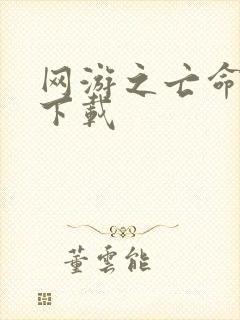 网游之亡命
下载
董雲能